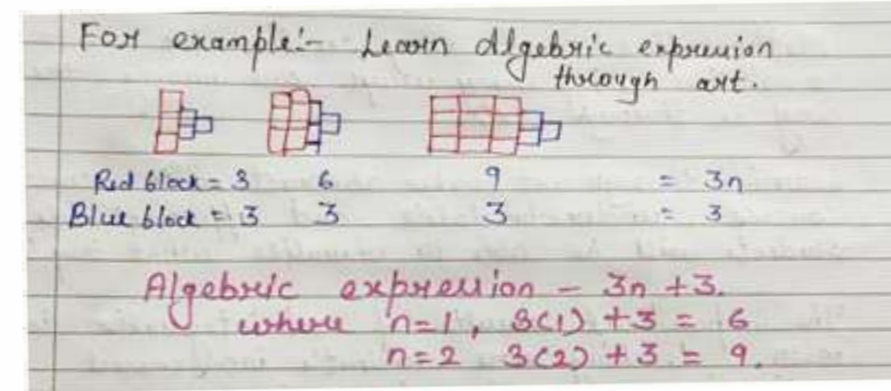 For example:- Learn Algebric expression
through art.
Red block = 3 6 9 = 3n
Blue block = 3 3 3 = 3
Algebric expression - 3n + 3.
where n=1, 3(1) + 3 = 6
n=2 3(2) + 3 = 9.